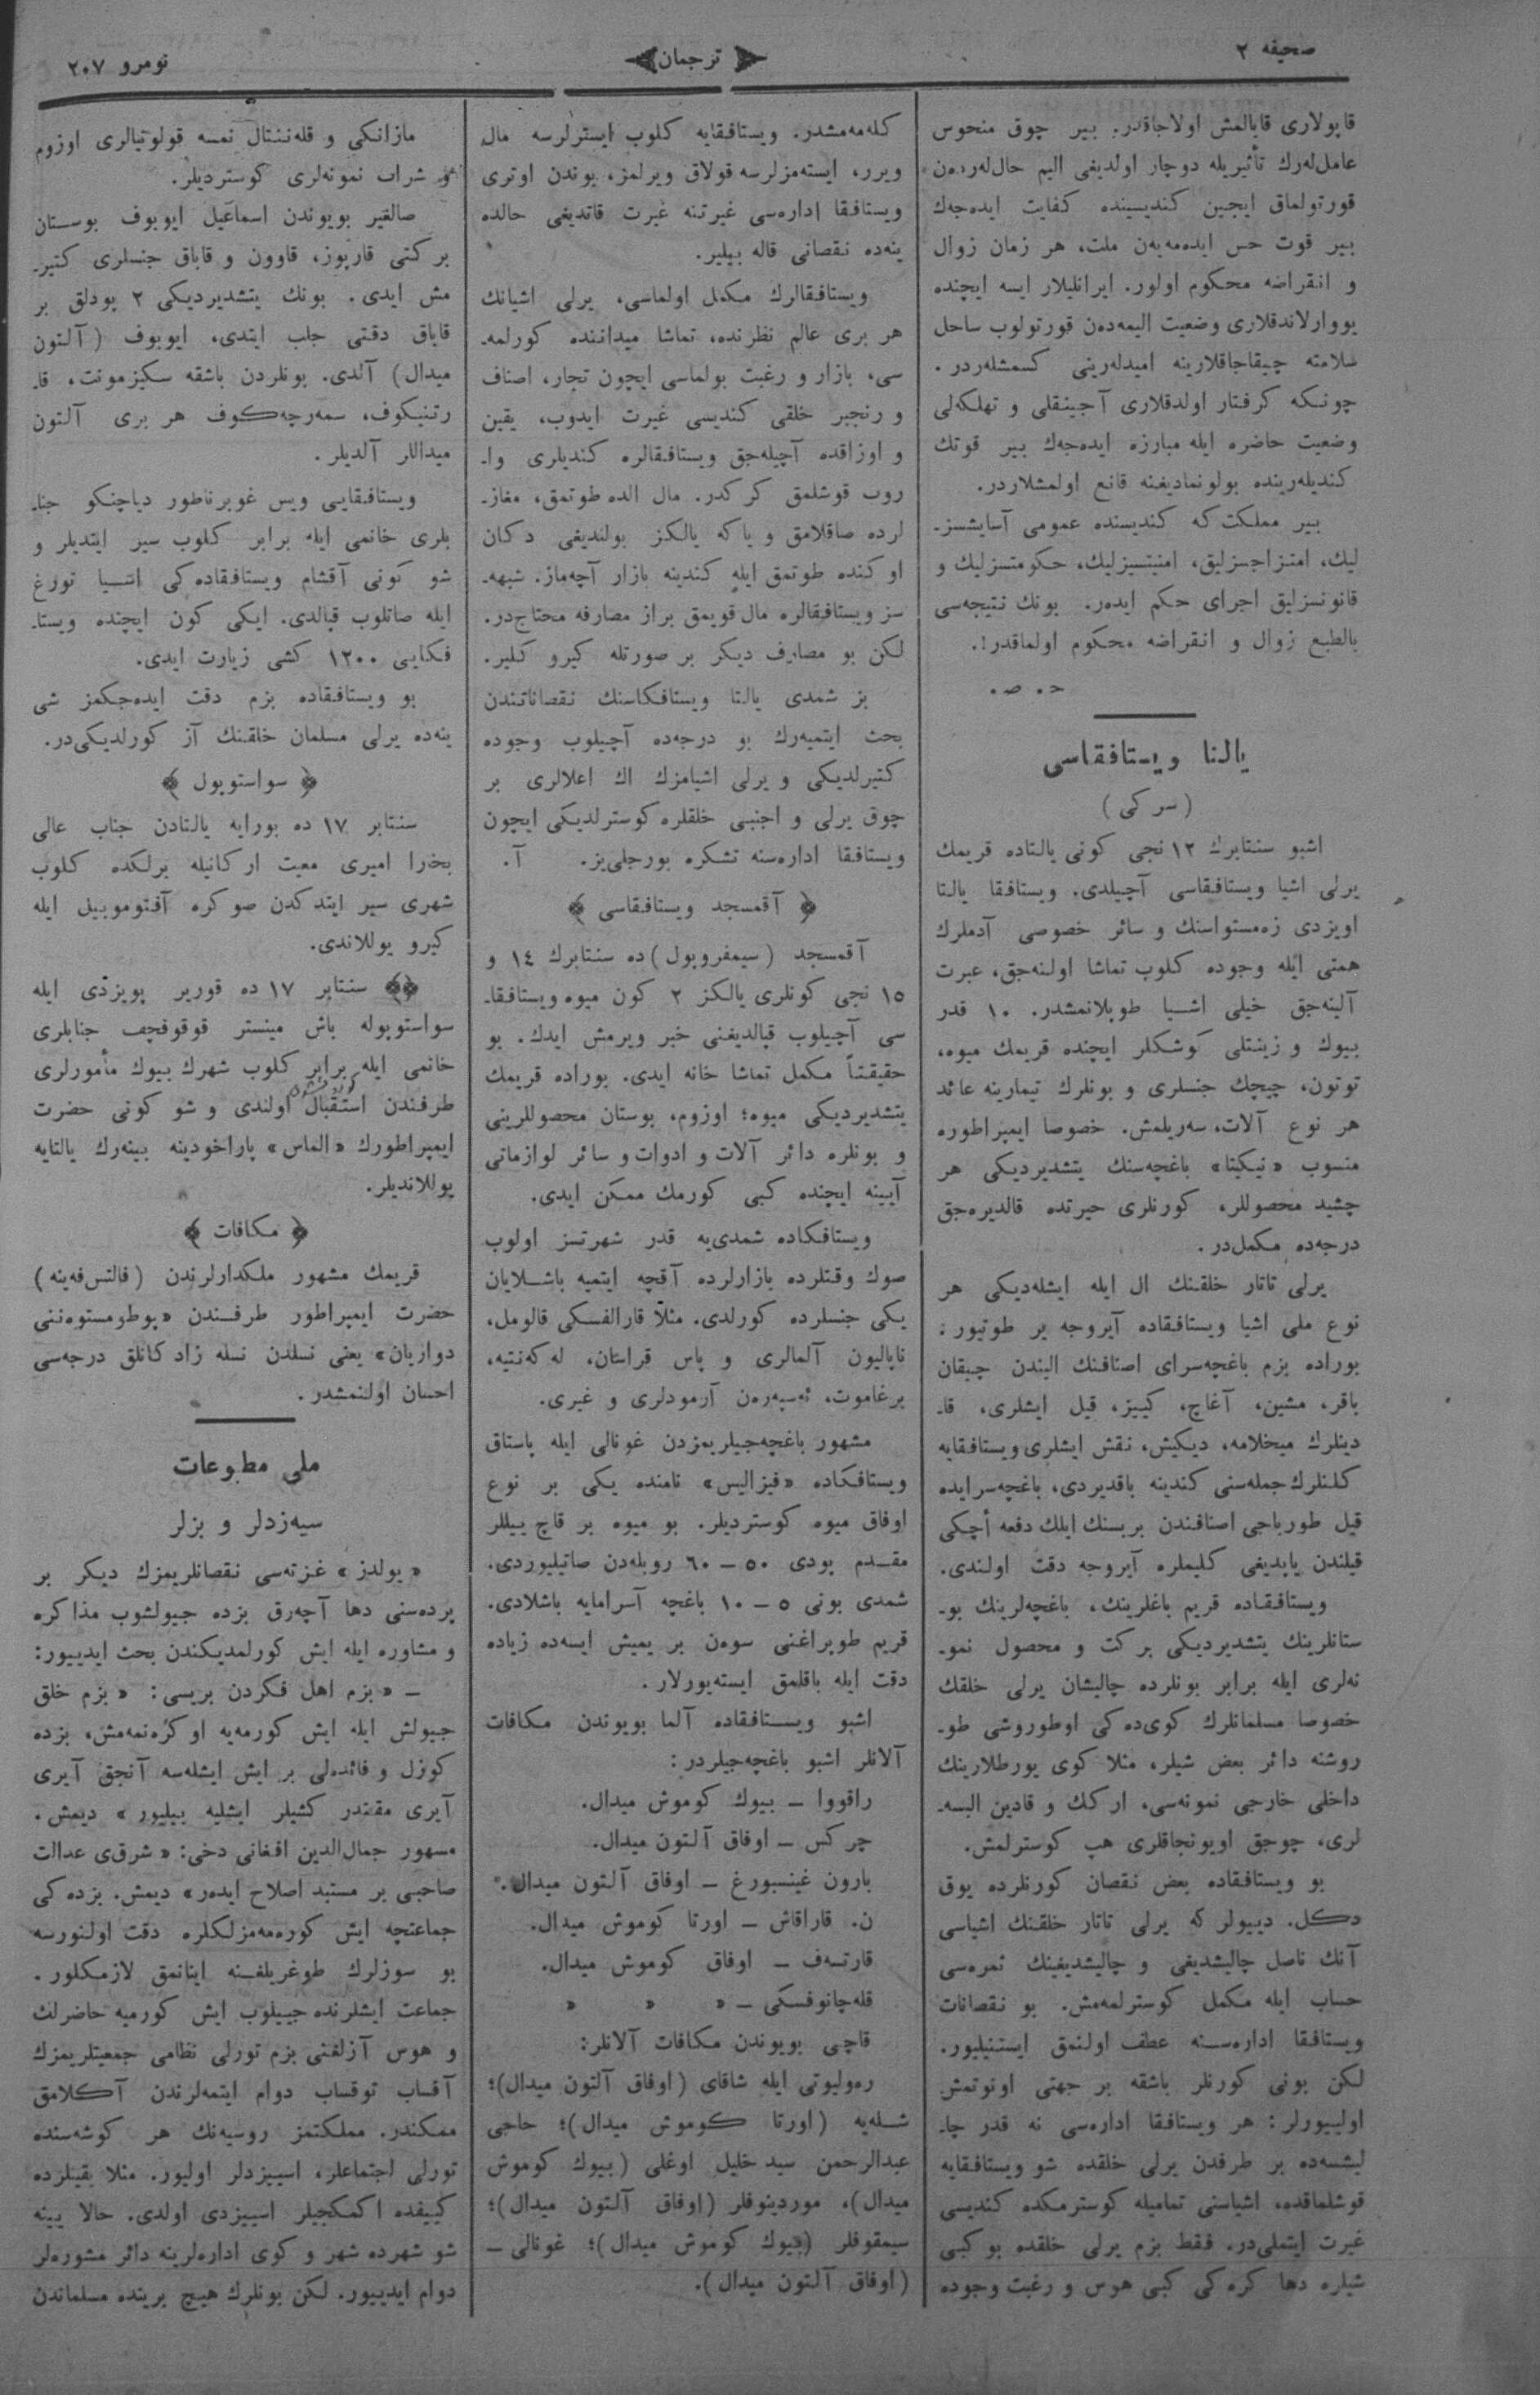 صحیفه ٢
ترجمان
نومرو ٢٠٧
قاپولاری قاپالمش اولاجاقدر. بیر چوق منحوس
عامل‌لەرك تأثیریله دوچار اولدیغی الیم حال‌لەردەن
قورتولماق ایچین كندیسینده كفایت ایدەجەك
بیر قوت حس ایدەمەیەن ملت، هر زمان زوال
و انقراضه محكوم اولور. ایرانلیلار ایسه ایچنده
یووارلاندقلاری وضعیت الیمەدەن قورتولوب ساحل
سلامته چیقاجاقلارینه امیدلەرینی كسمشلەردر.
چونكه گرفتار اولدقلاری آجینقلی و تهلكەلی
وضعیت حاضره ایله مبارزه ایدەجەك بیر قوتك
كندیلەرینده بولونمادیغنه قانع اولمشلاردر.
بیر مملكت كه كندیسنده عمومی آسایشسز-
لیك، امتزاجسزلیق، امنیتسیزلیك، حكومتسزلیك و
قانونسزلیق اجرای حكم ایدەر. بونك نتیجەسی
بالطبع زوال و انقراضه محكوم اولماقدر!.
ح. ص.
یالتا ویستافقاسی
(سرگی)
اشبو سنتابرك ١٢ نجی كونی یالتاده قریمك
یرلی اشیا ویستافقاسی آچیلدی. ویستافقا یالتا
اویزدی زەمستواسنك و سائر خصوصی آدملرك
همتی ایله وجوده كلوب تماشا اولنەجق، عبرت
آلینەجق خیلی اشیا طوپلانمشدر. ١٠ قدر
بیوك و زینتلی كوشكلر ایچنده قریمك میوه،
توتون، چیچك جنسلری و بونلرك تیمارینه عائد
هر نوع آلات، سەریلمش. خصوصا ایمپراطوره
منسوب «نیكیتا» باغچەسنك یتشدیردیكی هر
چشید محصوللر، كورنلری حیرتده قالدیرەجق
درجەده مكمل‌در.
یرلی تاتار خلقنك ال ایله ایشلەدیكی هر
نوع ملی اشیا ویستافقاده آیروجه یر طوتیور:
بوراده بزم باغچەسرای اصنافنك الیندن چیقان
باقر، مشین، آغاج، كییز، قیل ایشلری، قا-
دینلرك میخلامه، دیكیش، نقش ایشلری ویستافقایه
كلنلرك جملەسنی كندینه باقدیردی، باغچەسرایده
قیل طورباجی اصنافندن بریسنك ایلك دفعه أچكی
قیلندن یاپدیغی كلیملره آیروجه دقت اولندی.
ویستافقاده قریم باغلرینك، باغچەلرینك بو-
ستانلرینك یتشدیردیكی بركت و محصول نمو-
نەلری ایله برابر بونلرده چالیشان یرلی خلقك
خصوصا مسلمانلرك كوی‌دەكی اوطوروشی طو-
روشنه دائر بعض شیلر، مثلا كوی یورطلارینك
داخلی خارجی نمونەسی، اركك و قادین البسه-
لری، چوجق اویونجاقلری هپ كوسترلمش.
بو ویستافقاده بعض نقصان كورنلرده یوق
دكل. دیبولر كه یرلی تاتار خلقنك اشیاسی
آنك ناصل چالیشدیغی و چالیشدیغینك ثمرەسی
حساب ایله مكمل كوسترلمەمش. بو نقصانات
ویستافقا ادارەسنه عطف اولنمق ایستنیلیور.
لكن بونی كورنلر باشقه بر جهتی اونوتمش
اولیبورلر: هر ویستافقا ادارەسی نه قدر چا-
لیشسەده بر طرفدن یرلی خلقده شو ویستافقایه
قوشلماقده، اشیاسنی تمامیله كوسترمكده كندیسی
غیرت ایتملی‌در. فقط بزم یرلی خلقده بو كبی
شیلره دها كرەكی كبی هوس و رغبت وجوده
كلەمەمشدر. ویستافقایه كلوب ایسترلرسه مال
ویرر، ایستەمزلرسه قولاق ویرلمز، بوندن اوتری
ویستافقا ادارەسی غیرتنه غیرت قاتدیغی حالده
ینەده نقصانی قاله بیلیر.
ویستافقالرك مكمل اولماسی، یرلی اشیانك
هر بری عالم نظرنده، تماشا میداننده كورلمه-
سی، بازار و رغبت بولماسی ایچون تجار، اصناف
و رنجبر خلقی كندیسی غیرت ایدوب، یقین
و اوزاقده آچیلەجق ویستافقالره كندیلری وا-
روب قوشلمق كركدر. مال الده طوتمق، مغاز-
لرده صاقلامق و یاكه یالكز بولندیغی دكان
اوكنده طوتمق ایله كندینه بازار آچەماز. شبهه-
سز ویستافقالره مال قویمق براز مصارفه محتاج‌در.
لكن بو مصارف دیكر بر صورتله كیرو كلیر.
بز شمدی یالتا ویستافكاسنك نقصاناتندن
بحث ایتمیەرك بو درجەده آچیلوب وجوده
كتیرلدیكی و یرلی اشیامزك اك اعلالری بر
چوق یرلی و اجنبی خلقلره كوسترلدیكی ایچون
ویستافقا ادارەسنه تشكره بورجلی‌یز. آ.
﴿ آقمسجد ویستافقاسی ﴾
آقمسجد (سیمفروپول) ده سنتابرك ١٤ و
١٥ نجی كونلری یالكز ٢ كون میوه ویستافقا-
سی آچیلوب قپالدیغنی خبر ویرمش ایدك. بو
حقیقتاً مكمل تماشا خانه ایدی. بوراده قریمك
یتشدیردیكی میوه؛ اوزوم، بوستان محصوللرینی
و بونلره دائر آلات و ادوات و سائر لوازماتی
آیینه ایچنده كبی كورمك ممكن ایدی.
ویستافكاده شمدی‌یه قدر شهرتسز اولوب
صوك وقتلرده بازارلرده آقچه ایتمیه باشلایان
یكی جنسلرده كورلدی. مثلاً قارالفسكی قالومل،
ناپالیون آلمالری و پاس قراستان، لەكەنتیه،
برغاموت، ئەسپەرەن آرمودلری و غیری.
مشهور باغچەجیلریمزدن غونالی ایله پاستاق
ویستافكاده «فیزالیس» نامنده یكی بر نوع
اوفاق میوه كوستردیلر. بو میوه بر قاچ ییللر
مقدم پودی ٥٠ – ٦٠ روبلەدن صاتیلیوردی.
شمدی بونی ٥ – ١٠ باغچه آسرامایه باشلادی.
قریم طوپراغنی سوەن بر یمیش ایسەده زیاده
دقت ایله باقلمق ایستەیورلار.
اشبو ویستافقاده آلما بویوندن مكافات
آلانلر اشبو باغچەجیلردر:
راقووا – بیوك كوموش میدال.
چركس – اوفاق آلتون میدال.
بارون غینسبورغ – اوفاق آلتون میدال.
ن. قاراقاش – اورتا كوموش میدال.
قارتسەف – اوفاق كوموش میدال.
قلەچانوفسكی – « « «
قاچی بویوندن مكافات آلانلر:
رەولیوتی ایله شاقای (اوفاق آلتون میدال)؛
شلەیه (اورتا كوموش میدال)؛ حاجی
عبدالرحمن سید خلیل اوغلی (بیوك كوموش
میدال)، موردینوفلر (اوفاق آلتون میدال)؛
سیمقوفلر (بیوك كوموش میدال)؛ غونالی –
(اوفاق آلتون میدال).
مازانكی و قلەننتال نمسه قولونیالری اوزوم
و شراب نمونەلری كوستردیلر.
صالغیر بویوندن اسماعیل ایوبوف بوستان
بركتی قارپوز، قاوون و قاباق جنسلری كتیر-
مش ایدی. بونك یتشدیردیكی ٢ پودلق بر
قاباق دقتی جلب ایتدی، ایوبوف (آلتون
میدال) آلدی. بونلردن باشقه سكیزمونت، قا-
رتنیكوف، سمەرچەكوف هر بری آلتون
میداللر آلدیلر.
ویستافقایی ویس غوبرناطور دیاچنكو جنا-
بلری خانمی ایله برابر كلوب سیر ایتدیلر و
شو كونی آقشام ویستافقادەكی اشیا تورغ
ایله صاتلوب قپالدی. ایكی كون ایچنده ویستا-
فكایی ١٢٠٠ كشی زیارت ایدی.
بو ویستافقاده بزم دقت ایدەجكمز شی
ینەده یرلی مسلمان خلقنك آز كورلدیكی‌در.
﴿ سواستوپول ﴾
سنتابر ١٧ ده بورایه یالتادن جناب عالی
بخارا امیری معیت اركانیله برلكده كلوب
شهری سیر ایتدكدن صوكره آفتوموبیل ایله
كیرو یوللاندی.
﴿﴾ سنتابر ١٧ ده قوریر پویزدی ایله
سواستوپوله باش مینستر قوقوفچف جنابلری
خانمی ایله برابر كلوب شهرك بیوك مأمورلری
طرفندن استقبال اولندی و شو كونی حضرت
ایمپراطورك «الماس» پاراخودینه بینەرك یالتایه
یوللاندیلر.
﴿ مكافات ﴾
قریمك مشهور ملكدارلرندن (فالتس‌فەینه)
حضرت ایمپراطور طرفندن «پوطومستوەننی
دواریان» یعنی نسلدن نسله زادكانلق درجەسی
احسان اولنمشدر.
ملی مطبوعات
سیەزدلر و بزلر
«یولدز» غزتەسی نقصانلریمزك دیكر بر
پردەسنی دها آچەرق بزده جیولشوب مذاكره
و مشاوره ایله ایش كورلمدیكندن بحث ایدییور:
– «بزم اهل فكردن بریسی: «بزم خلق
جیولش ایله ایش كورمەیه اوكرەنمەمش، بزده
كوزل و فائدەلی بر ایش ایشلەسه آنجق آیری
آیری مقتدر كشیلر ایشلیه بیلیور» دیمش.
مسهور جمال‌الدین افغانی دخی: «شرق‌ی عدالت
صاحبی بر مستبد اصلاح ایدەر» دیمش. بزدەكی
جماعتچه ایش كورەمەمزلكلره دقت اولنورسه
بو سوزلرك طوغریلغنه اینانمق لازمكلور.
جماعت ایشلرنده جییلوب ایش كورمیه حاضرلك
و هوس آزلغنی بزم تورلی نظامی جمعیتلریمزك
آقساب توقساب دوام ایتمەلرندن آكلامق
ممكندر. مملكتمز روسیەنك هر كوشەسنده
تورلی اجتماعلر، اسییزدلر اولیور. مثلا یقینلرده
كییفده اكمكجیلر اسییزدی اولدی. حالا یینه
شو شهرده شهر و كوی ادارەلرینه دائر مشورەلر
دوام ایدییور. لكن بونلرك هیچ برینده مسلماندن